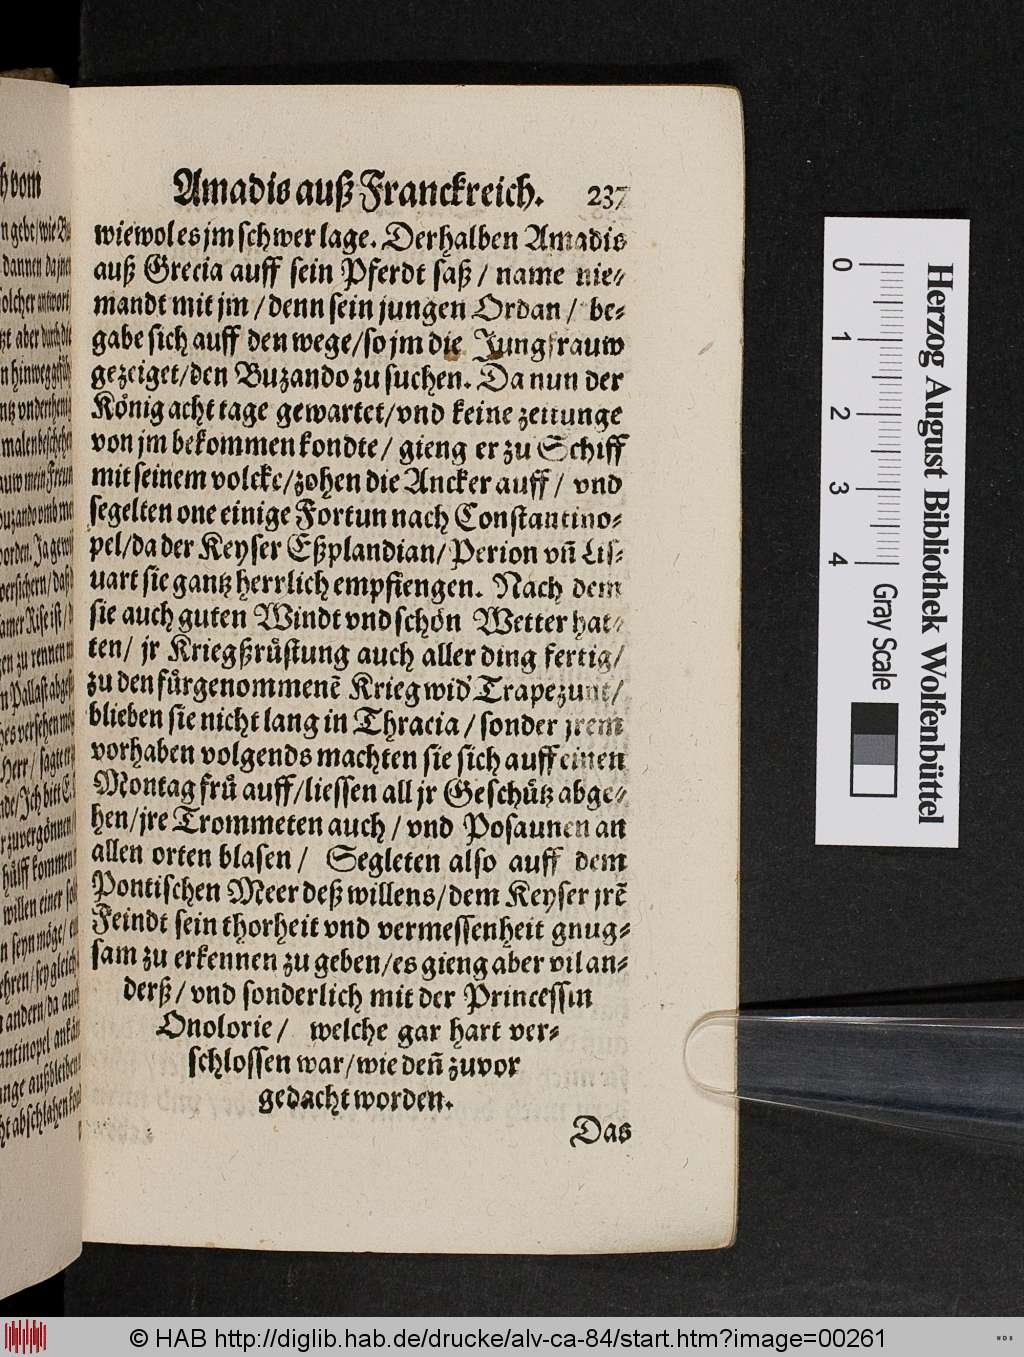 Amadis auß Franckreich. 237
wiewol es jm schwer lage. Derhalben Amadis
auß Grecia auff sein Pferdt saß / name nie-
mandt mit jm / denn sein jungen Ordan / be-
gabe sich auff den wege/so jm die Jungfrauw
gezeiget/den Buzando zu suchen. Da nun der
König acht tage gewartet/vnd keine zeitunge
von jm bekommen kondte/ gieng er zu Schiff
mit seinem volcke/zohen die Ancker auff / vnd
segelten one einige Fortun nach Constantino-
pel/da der Keyser Eßplandian/Perion vñ Lis-
uart sie gantz herrlich empfiengen. Nach dem
sie auch guten Windt vnd schön Wetter hat-
ten/ jr Kriegßrüstung auch aller ding fertig/
zu den fürgenommenē Krieg wid' Trapezunt/
blieben sie nicht lang in Thracia / sonder jrem
vorhaben volgends machten sie sich auff einen
Montag frů auff/liessen all jr Geschütz abge-
hen/jre Trommeten auch / vnd Posaunen an
allen orten blasen / Segleten also auff dem
Pontischen Meer deß willens/dem Keyser jrē
Feindt sein thorheit vnd vermessenheit gnug-
sam zu erkennen zu geben/es gieng aber vil an-
derß / vnd sonderlich mit der Princessin
Onolorie / welche gar hart ver-
schlossen war/wie deñ zuvor
gedacht worden.
Das
h vom
0 1 2 3 4
Gray Scale
Herzog August Bibliothek Wolfenbüttel
© HAB http://diglib.hab.de/drucke/alv-ca-84/start.htm?image=00261